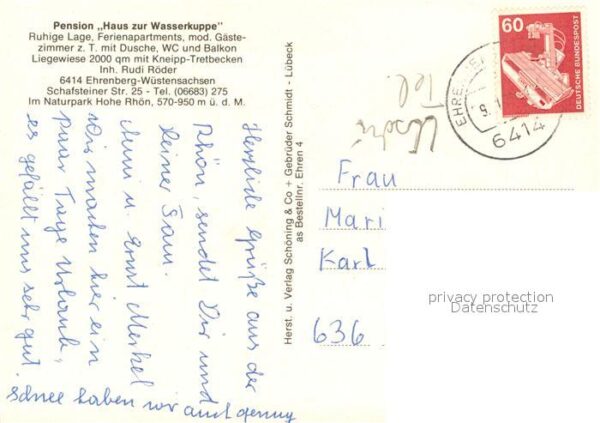 Pension „Haus zur Wasserkuppe"
Ruhige Lage, Ferienapartments, mod. Gäste-
zimmer z. T. mit Dusche, WC und Balkon
Liegewiese 2000 qm mit Kneipp-Tretbecken
Inh. Rudi Röder
6414 Ehrenberg-Wüstensachsen
Schafsteiner Str. 25 - Tel. (06683) 275
Im Naturpark Hohe Rhön, 570-950 m ü. d. M.
Herzliche Grüße aus der
Rhön, sendet Dir und
Deiner Fam.
Anni u. Ernst Merkel
Wir machen hier ein
paar Tage Urlaub,
es gefällt uns sehr gut.
schnee haben wir auch genug
Herst. u. Verlag Schöning & Co + Gebrüder Schmidt - Lübeck
as Bestellnr. Ehren 4
Tel.
60
DEUTSCHE BUNDESPOST
6414
Frau
Mari
Karl
636
privacy protection
Datenschutz